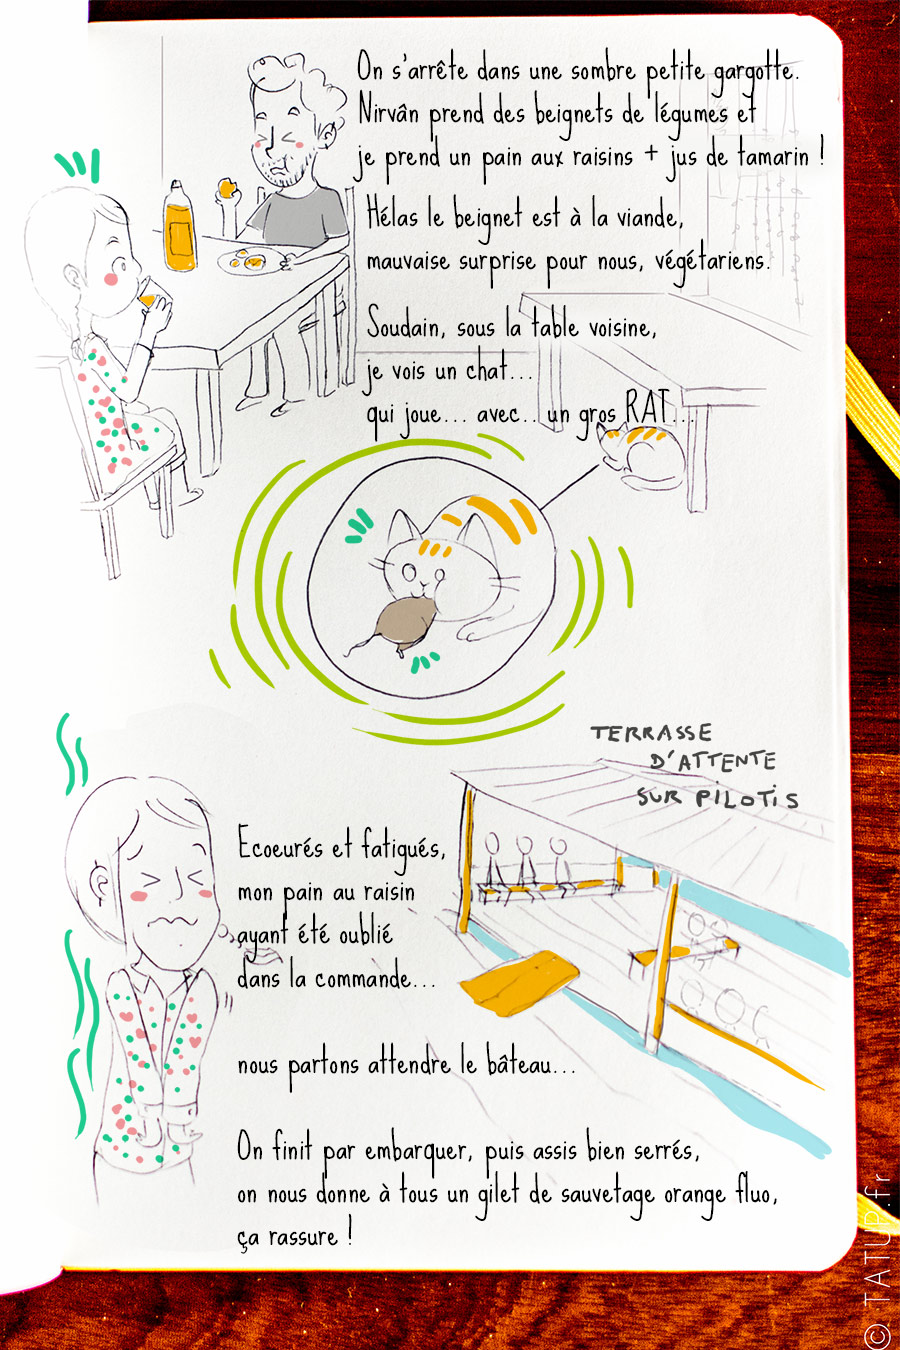 On s'arrête dans une sombre petite gargotte.
Nirvân prend des beignets de légumes et
je prend un pain aux raisins + jus de tamarin !
Hélas le beignet est à la viande,
mauvaise surprise pour nous, végétariens.
Soudain, sous la table voisine,
je vois un chat...
qui joue... avec... un gros RAT...
TERRASSE
D'ATTENTE
SUR PILOTIS
Ecoeurés et fatigués,
mon pain au raisin
ayant été oublié
dans la commande...
nous partons attendre le bâteau...
On finit par embarquer, puis assis bien serrés,
on nous donne à tous un gilet de sauvetage orange fluo,
ça rassure !
© TATUP.fr